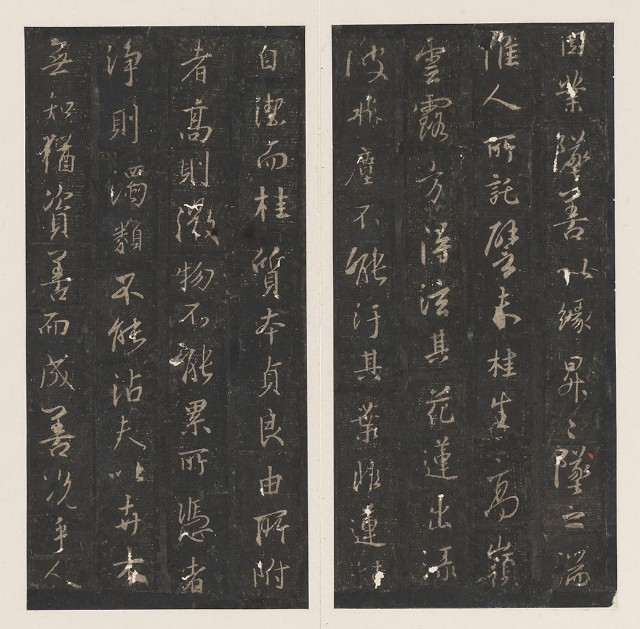 因業墜善以緣昇〻墜之端
惟人所託譬夫桂生高嶺
雲露方得泫其花蓮出淥
波飛塵不能污其葉非蓮性
自潔而桂質本貞良由所附
者高則微物不能累所憑者
淨則濁類不能沾夫以卉木
無知猶資善而成善況乎人